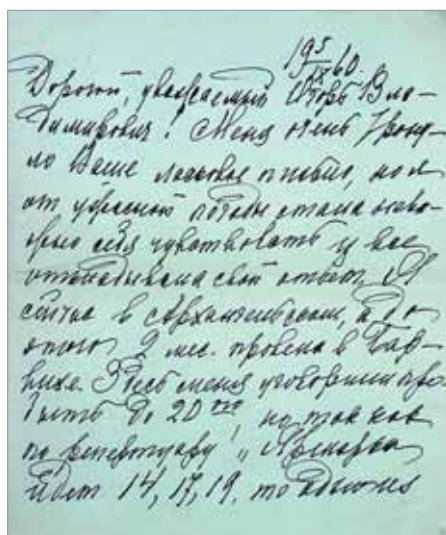 19 5/IX 60.
Дорогой, уважаемый Игорь Вла-
димирович! Меня очень трону-
ло Ваше ласковое письмо, но я
от ужасной погоды стала нехо-
рошо себя чувствовать и все
откладывала свой ответ. Я
сейчас в Архангельском, а до
этого 2 мес. провела в Бар-
вихе. Здесь меня уговорили про-
быть до 20го, но так как
по репертуару „
идет 14, 17, 19, то